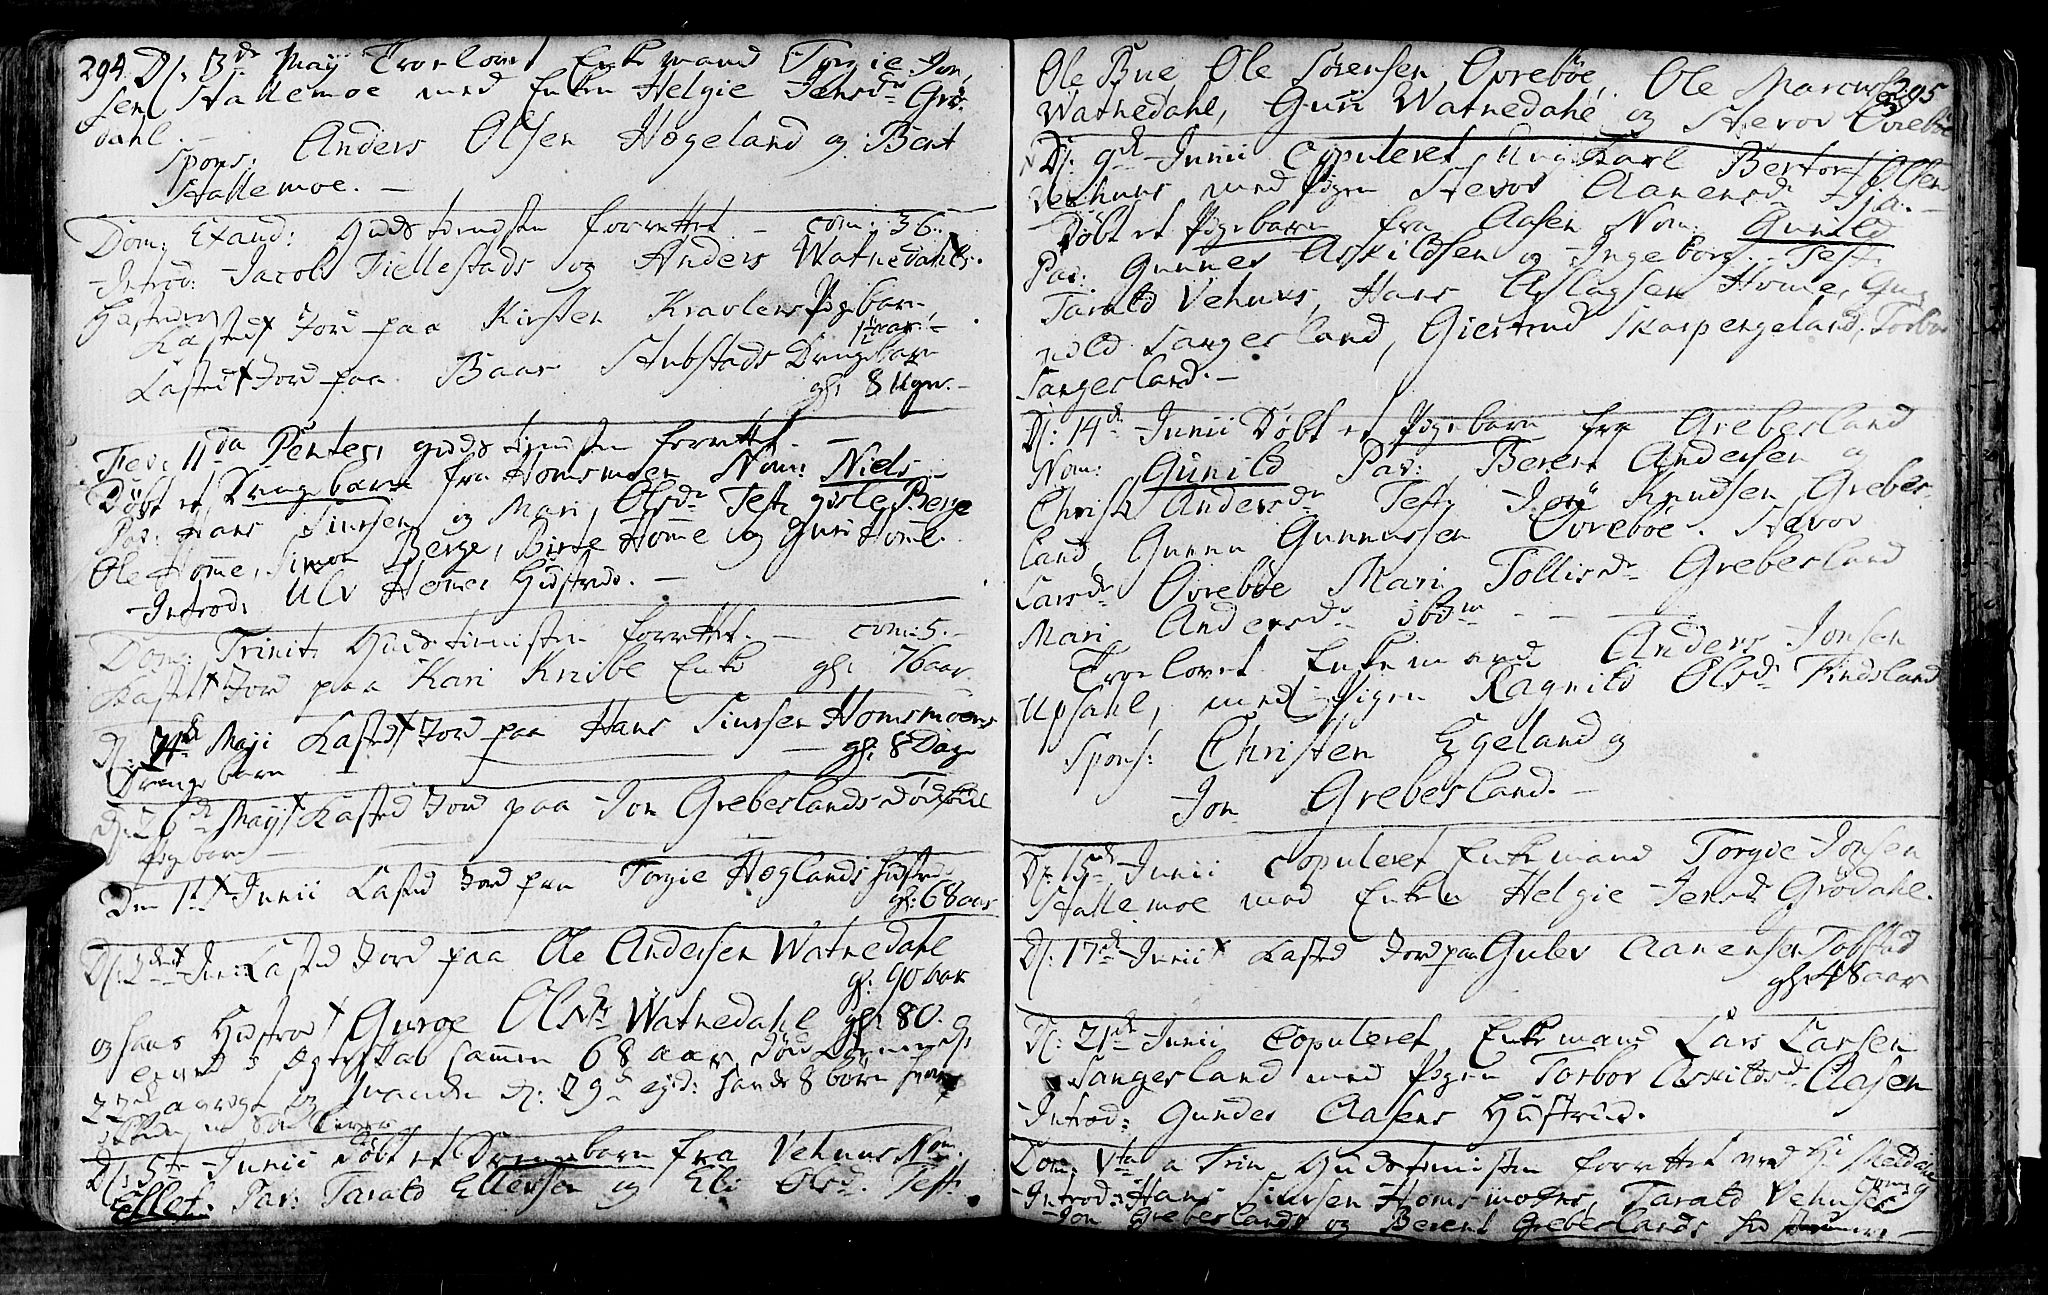 294. D: 3de Maij Troelovet Enkemand Torgie Jon,
sen Stallemoe med Enken Helgie Jensdr Grö-
dahl. —
Spons: Anders Olsen Hogeland og Bent
Stallemoe. —
Dom: Exaud: Gudstienesten forrettet — com: 36.
Introd: Jacob Tiellestads og Anders Watnedahls
Hustruer
Kasted Jord paa Kirsten Pigebarn
Kasted Jord paa Baar Stubstads Drengebarn
gl: 8 Ugr. —
Fer: IIda Pentec, gudstienesten forrettet. —
Döbt et Drengebarn fra Homsmoen Nom: Niels
Par: Hans Siursen og Mari Olsdr Test: gisle Berge
Ole Homme, Simon Berge, Birte Homme og Guri Homme.
Introd: Ulv Homes Hustrue. —
Dom: Trinit: Gudstienisten forrettet. — com: 5. —
Kasted Jord paa Kari Knibe Enke gl: 76 aar.
D: 24de Maji Kasted Jord paa Hans Siursen Homsmoens
Drengebarn — gl: 8 Dage
D: 26de Maij Kasted Jord paa Jon Grebeslands dödföd
Pigebarn —
Den 1te Junii Kasted Jord paa Torgie Hoglands Hustrue
gl: 68 aar
D: 2den Jun: Kasted Jord paa Ole Andersen Watnedahl
gl: 90 aar
og hans Hustroe Guroe Olsdr Watnedahl gl: 80.
Ægteskab sammen 68 aar, döde
og Manden d: 29de 8 börn
D: 5te Junii döbt et Drengebarn fra Vehuus Nom:
Ellef. Par: Tarald Ellevsen og Eli Olsd. Test:
Ole Bue, Ole Sörensen Övreböe, Ole Marcus 295
Watnedahl, Guri Watnedahl og Stevor Övreböe
D: 9de Junii Copuleret Ungkarl Bertor Olsen
Vehuus med Pigen Stevor Aanensdr —
Döbt et Pigebarn fra Aasen Nom: Gunild
Par: Gunner Askildsen og Ingeborg. Test:
Tarald Vehuus, Hans Aslagsen Home, Gu-
nild Sangesland, Giertrud Skarpengeland, Torbor
Sangesland. —
D: 14de Junii Döbt et Pigebarn fra Grebesland
Nom: Gunild Par: Berent Andersen og
Christi Andersdr Test: Jon Knudsen Grebes-
land, Gunnu Gunnussen Övreböe. Stevor
Larsdr Övreböe Mari Tollisdr Grebesland
Mari Andersdr ibdm — — —
Troelovet Enkemand Anders Jonsen
Upsahl, med Pigen Ragnild Olsdr Findsland
Spons: Christen Egeland og
Jon Grebesland. —
D: 15de Junii copuleret Enkemand Torgie Jonsen
Stallemoe med Enken Helgie Jensdr Grödahl.
D: 17de Junii Kasted Jord paa Gulev Aanensen Tobstad
gl: 48 aar
D: 21de Junii Copuleret Enkemand Lars Larsen
Sangesland med Pigen Torbor Askildsdr Aasen
Introd: Gunder Aasens Hustrue.
Dom: Vta a Trin: Gudstienisten forrettet med
Introd: Hans Siursen Homsmoens, Tarald Vehuses
Jon Grebeslands og Berent Grebeslands